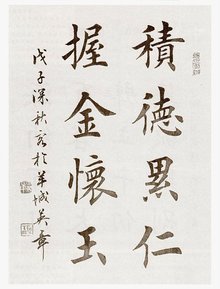 積德累仁
握金懷玉
戊子深秋書於羊城吳章